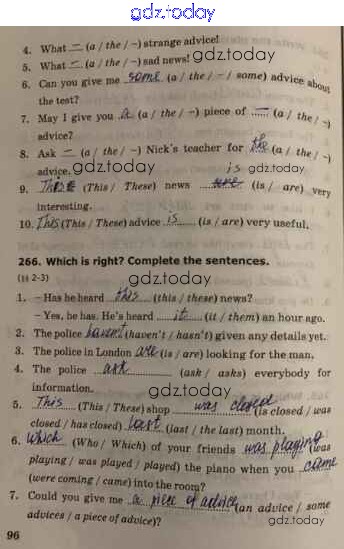 gdz.today
4. What – (a / the / –) strange advice!
gdz.today
5. What – (a / the / –) sad news!
6. Can you give me some (a / the / – / some) advice about
the test?
gdz.today
7. May I give you a (a / the / –) piece of – (a / the / –)
advice?
8. Ask – (a / the / –) Nick's teacher for the (a / the / –)
advice.
gdz.today
is
9. These (This / These) news are (is / are) very
interesting.
gdz.today
10. This (This / These) advice is (is / are) very useful.
266. Which is right? Complete the sentences.
(§§ 2-3)
gdz.today
1. – Has he heard this (this / these) news?
– Yes, he has. He's heard it (it / them) an hour ago.
gdz.today
2. The police haven't (haven't / hasn't) given any details yet.
3. The police in London are (is / are) looking for the man.
gdz.today
4. The police ask (ask / asks) everybody for
information.
gdz.today
5. This (This / These) shop was closed (is closed / was
closed / has closed) last (last / the last) month.
gdz.today
6. Which (Who / Which) of your friends was playing (was
playing / was played / played) the piano when you came
(were coming / came) into the room?
gdz.today
7. Could you give me a piece of advice (an advice / some
advices / a piece of advice)?
gdz.today
96
gdz.today